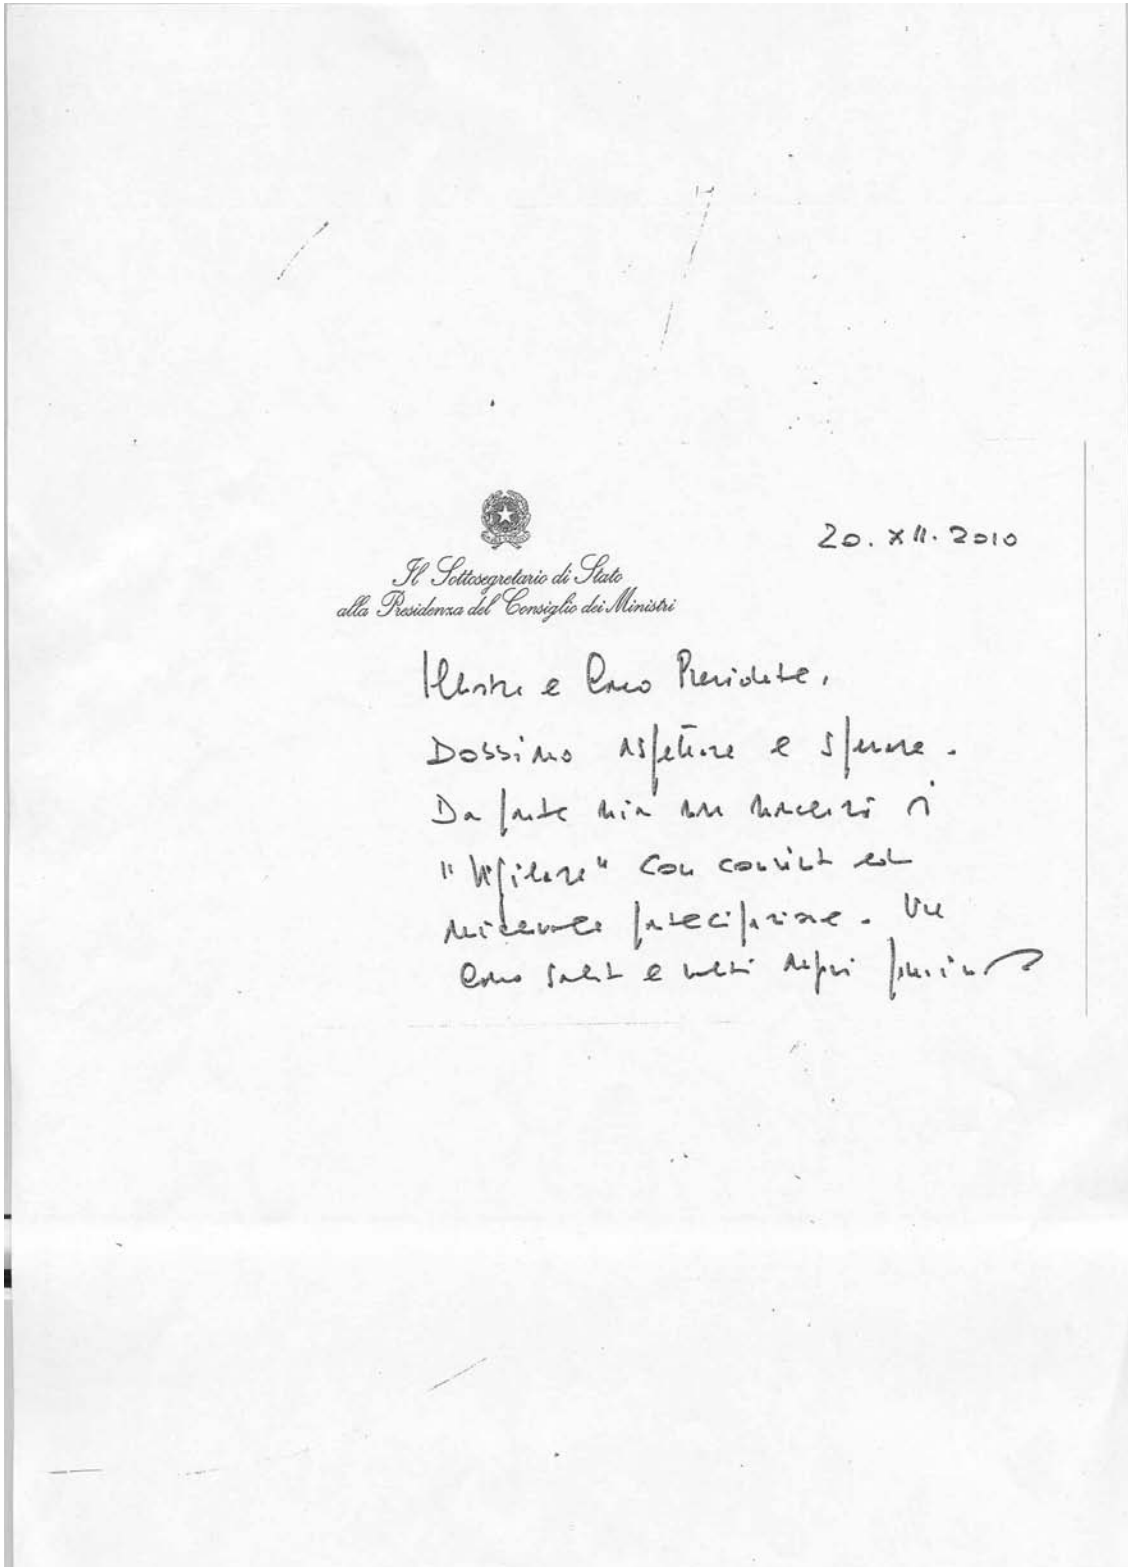 20. XII. 2010
Il Sottosegretario di Stato
alla Presidenza del Consiglio dei Ministri
Illustre e Caro Presidente,
Dobbiamo aspettare e sperare.
Da parte mia non mancherò di
"vigilare" con convinta ed
amichevole partecipazione. Un
caro saluto e molti auguri